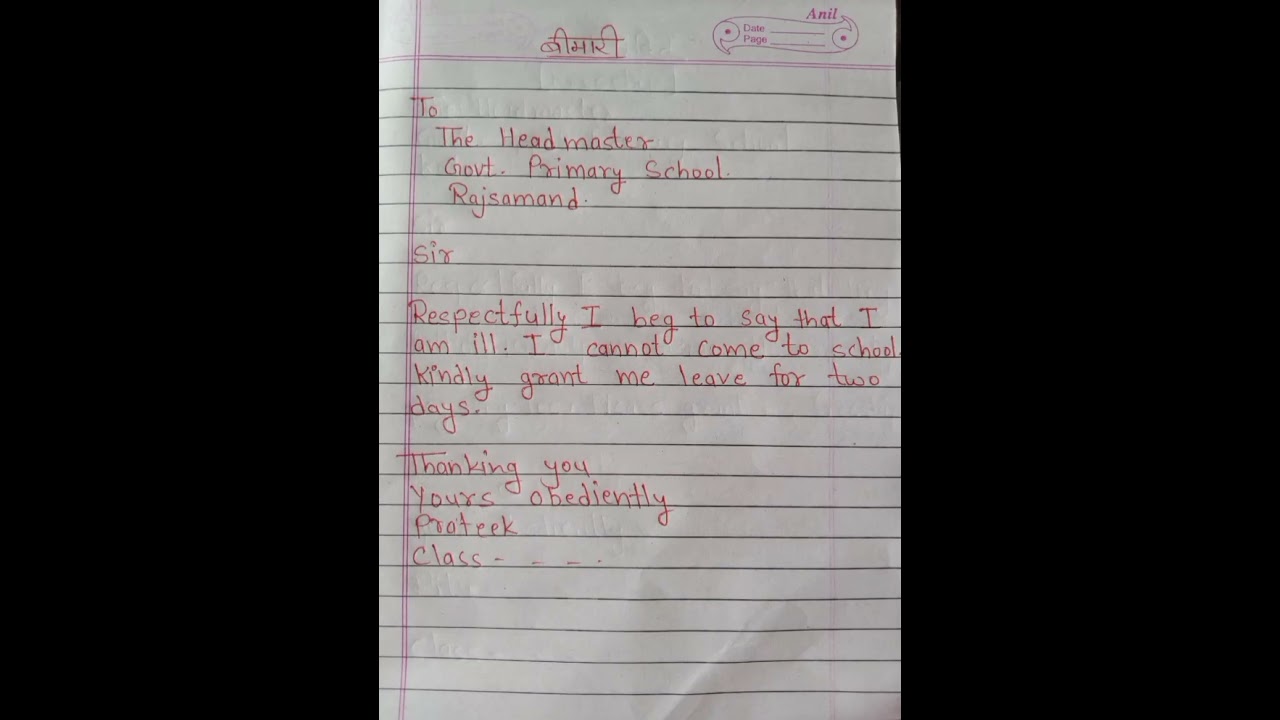 Anil
Date
Page
बीमारी
To
The Headmaster
Govt. Primary School.
Rajsamand.
Sir
Respectfully I beg to say that I
am ill. I cannot come to school.
Kindly grant me leave for two
days.
Thanking you
Yours obediently
Prateek
Class - - - .